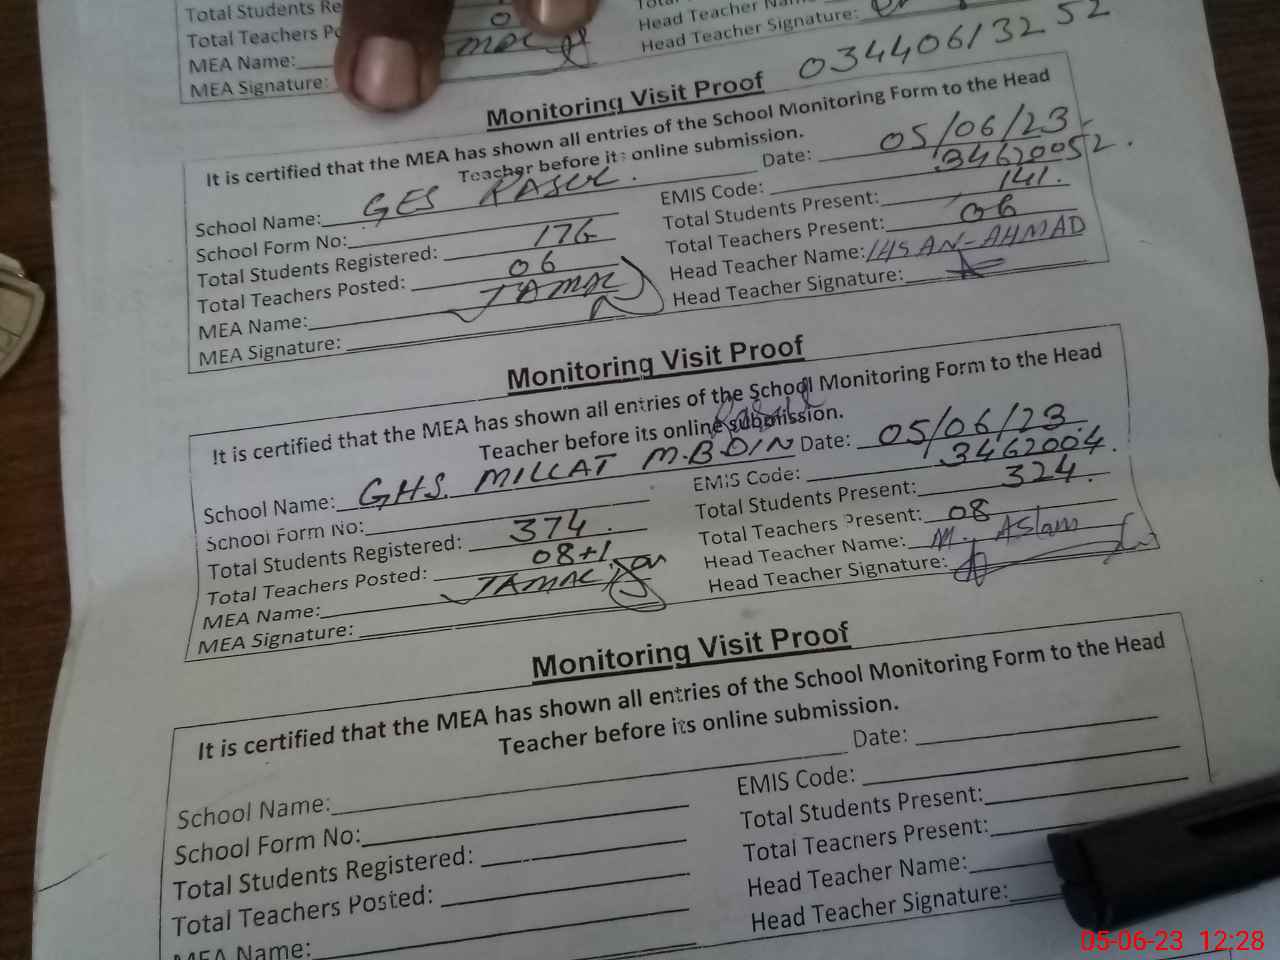 Total Students Re
Total Teachers Po
MEA Name:
MEA Signature:
Head Teacher Na
Head Teacher Signature:
03440613252
Monitoring Visit Proof
It is certified that the MEA has shown all entries of the School Monitoring Form to the Head
Teacher before its online submission.
School Name: GES RASUL. Date: 05/06/23
School Form No: EMIS Code: 34620052.
Total Students Registered: 176 Total Students Present: 141.
Total Teachers Posted: 06 Total Teachers Present: 06
MEA Name: JAMAL Head Teacher Name: IHSAN-AHMAD
MEA Signature: Head Teacher Signature:
Monitoring Visit Proof
It is certified that the MEA has shown all entries of the School Monitoring Form to the Head
Teacher before its online submission.
Rasul
School Name: GHS. MILLAT M.B.DIN Date: 05/06/23.
School Form No: EMIS Code: 3462004.
Total Students Registered: 374. Total Students Present: 324.
Total Teachers Posted: 08+1. Total Teachers Present: 08
MEA Name: JAMAL Head Teacher Name: M. Aslam
MEA Signature: Head Teacher Signature:
Monitoring Visit Proof
It is certified that the MEA has shown all entries of the School Monitoring Form to the Head
Teacher before its online submission.
School Name: Date:
School Form No: EMIS Code:
Total Students Registered: Total Students Present:
Total Teachers Posted: Total Teachers Present:
MEA Name: Head Teacher Name:
Head Teacher Signature:
05-06-23 12:28